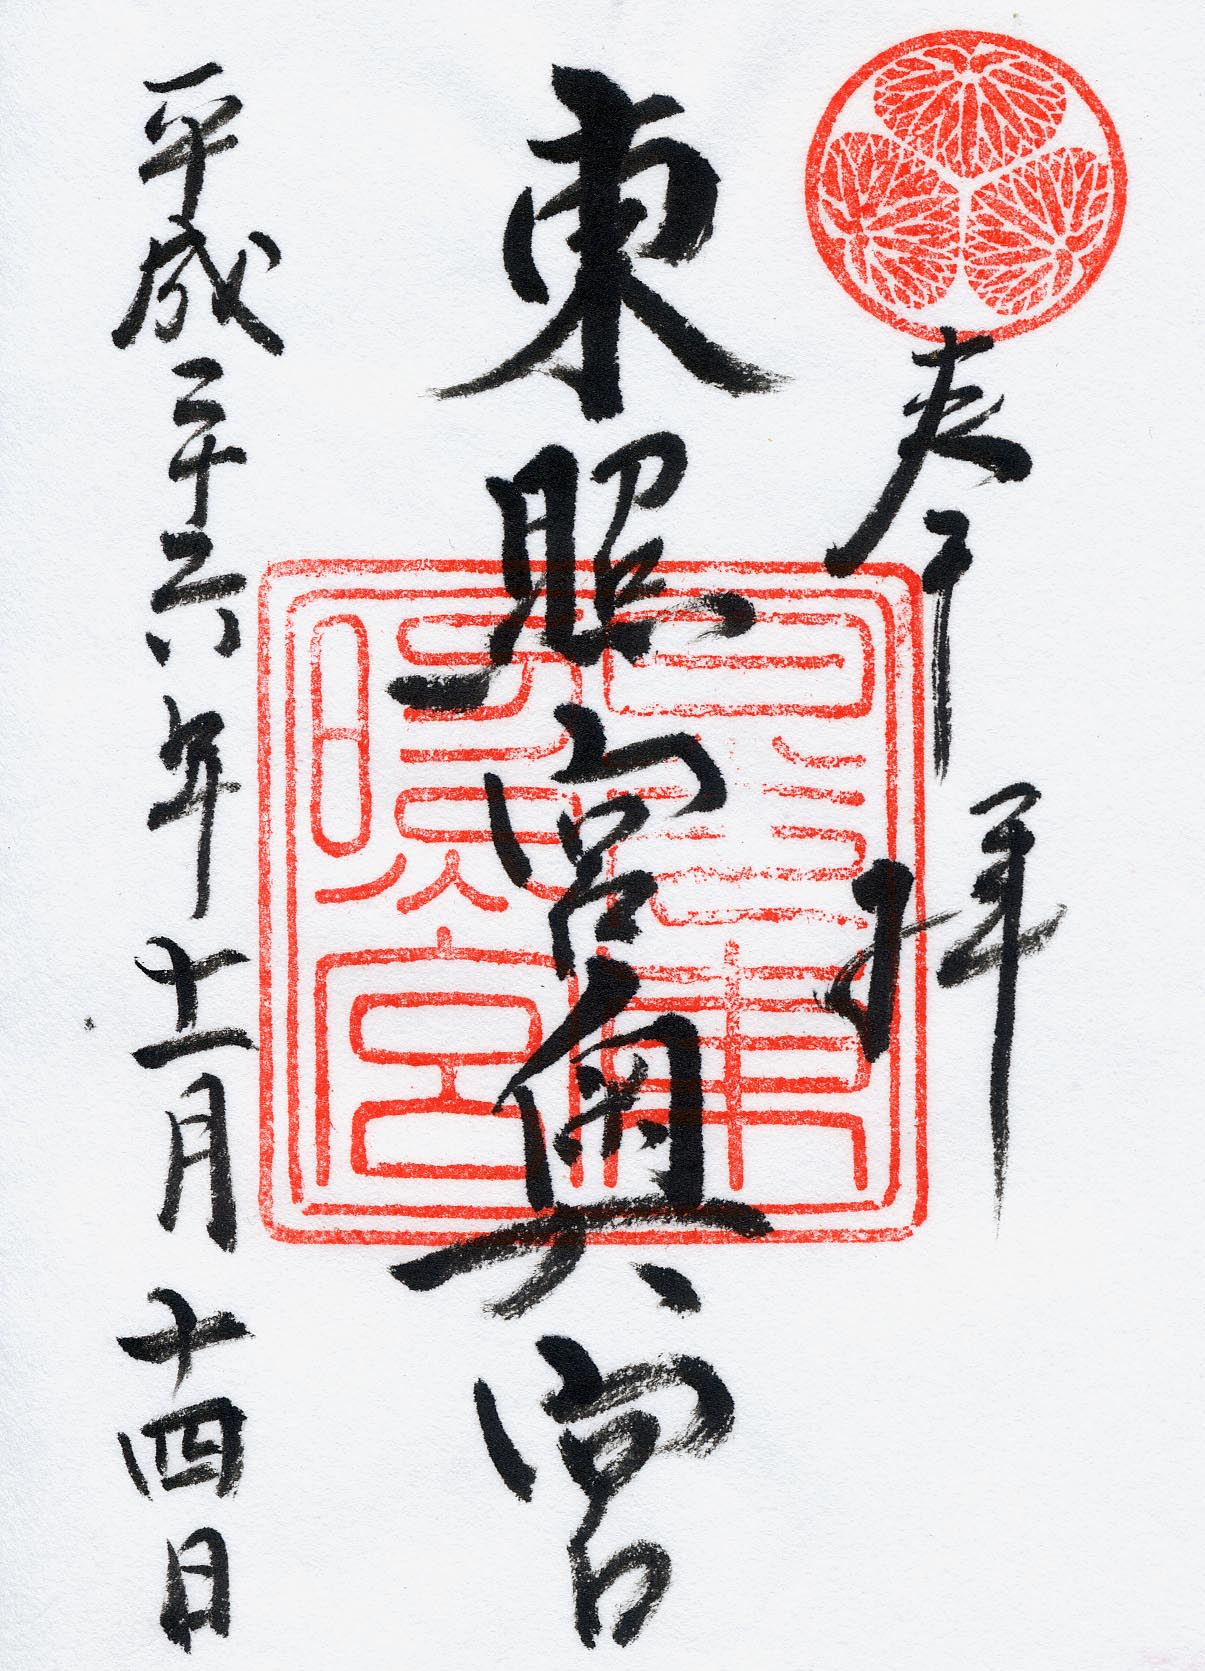 奉拝
東照宮奥宮
平成二十六年十一月十四日
日光東
照宮